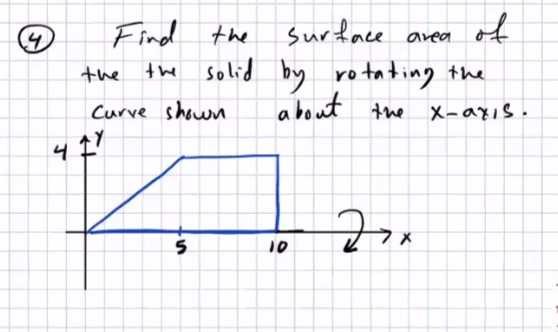 ④ Find the surface area of
the the solid by rotating the
curve shown about the x-axis.
4 y
5 10 x